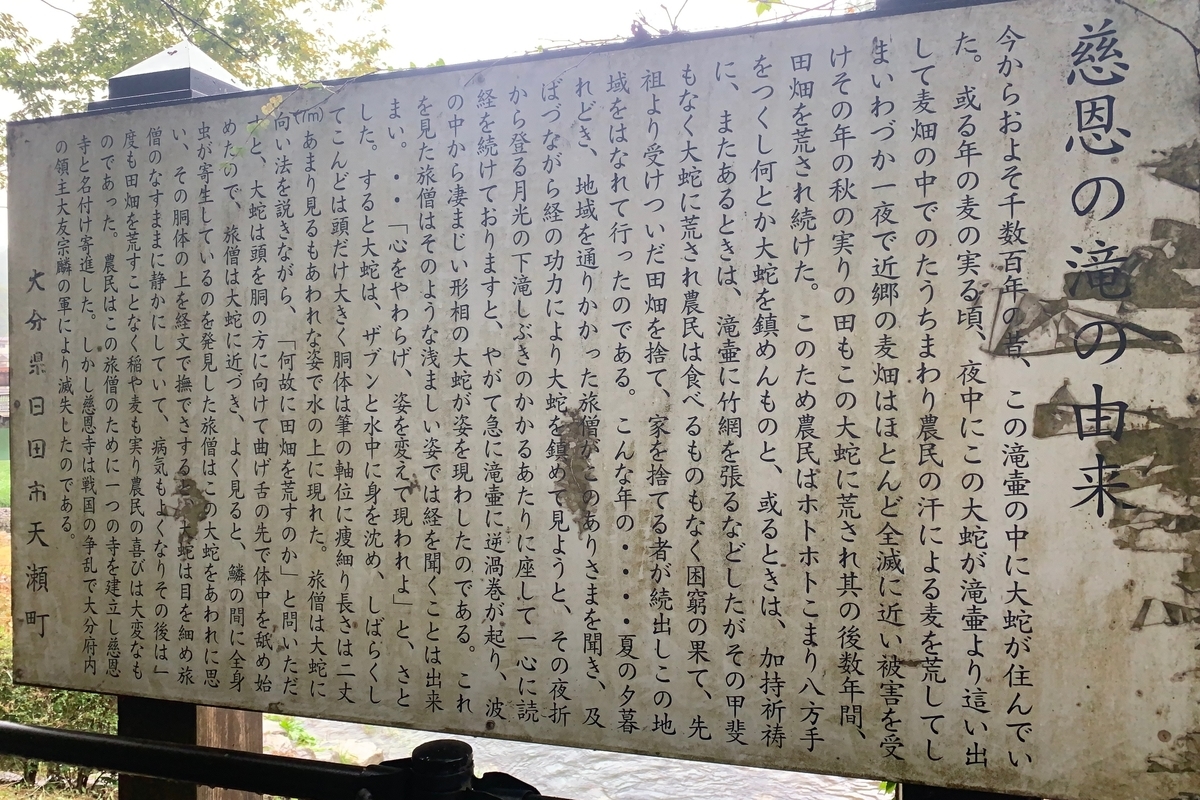 慈恩の滝の由来
今からおよそ千数百年の昔、この滝壷の中に大蛇が住んでい
た。或る年の麦の実る頃、夜中にこの大蛇が滝壷より這い出
して麦畑の中でのたうちまわり農民の汗による麦を荒してし
まいわづか一夜で近郷の麦畑はほとんど全滅に近い被害を受
けその年の秋の実りの田もこの大蛇に荒され其の後数年間、
田畑を荒され続けた。このため農民はホトホトこまり八方手
をつくし何とか大蛇を鎮めんものと、或るときは、加持祈祷
に、またあるときは、滝壷に竹網を張るなどしたがその甲斐
もなく大蛇に荒され農民は食べるものもなく困窮の果て、先
祖より受けついだ田畑を捨て、家を捨てる者が続出しこの地
域をはなれて行ったのである。こんな年の・・・・夏の夕暮
れどき、地域を通りかかった旅僧がこのありさまを聞き、及
ばづながら経の功力により大蛇を鎮めて見ようと、その夜折
から登る月光の下滝しぶきのかかるあたりに座して一心に読
経を続けておりますと、やがて急に滝壷に逆渦巻が起り、波
の中から凄まじい形相の大蛇が姿を現わしたのである。これ
を見た旅僧はそのような浅ましい姿では経を聞くことは出来
まい。・・「心をやわらげ、姿を変えて現われよ」と、さと
した。すると大蛇は、ザブンと水中に身を沈め、しばらくし
てこんどは頭だけ大きく胴体は筆の軸位に痩細り長さは二丈
(7m)あまり見るもあわれな姿で水の上に現れた。旅僧は大蛇に
向い法を説きながら、「何故に田畑を荒すのか」と問いただ
すと、大蛇は頭を胴の方に向けて曲げ舌の先で体中を舐め始
めたので、旅僧は大蛇に近づき、よく見ると、鱗の間に全身
虫が寄生しているのを発見した旅僧はこの大蛇をあわれに思
い、その胴体の上を経文で撫でさすると、大蛇は目を細め旅
僧のなすままに静かにしていて、病気もよくなりその後は」
度も田畑を荒すことなく稲や麦も実り農民の喜びは大変なも
のであった。農民はこの旅僧のために一つの寺を建立し慈恩
寺と名付け寄進した。しかし慈恩寺は戦国の争乱で大分府内
の領主大友宗麟の軍により滅失したのである。
大分県日田市天瀬町